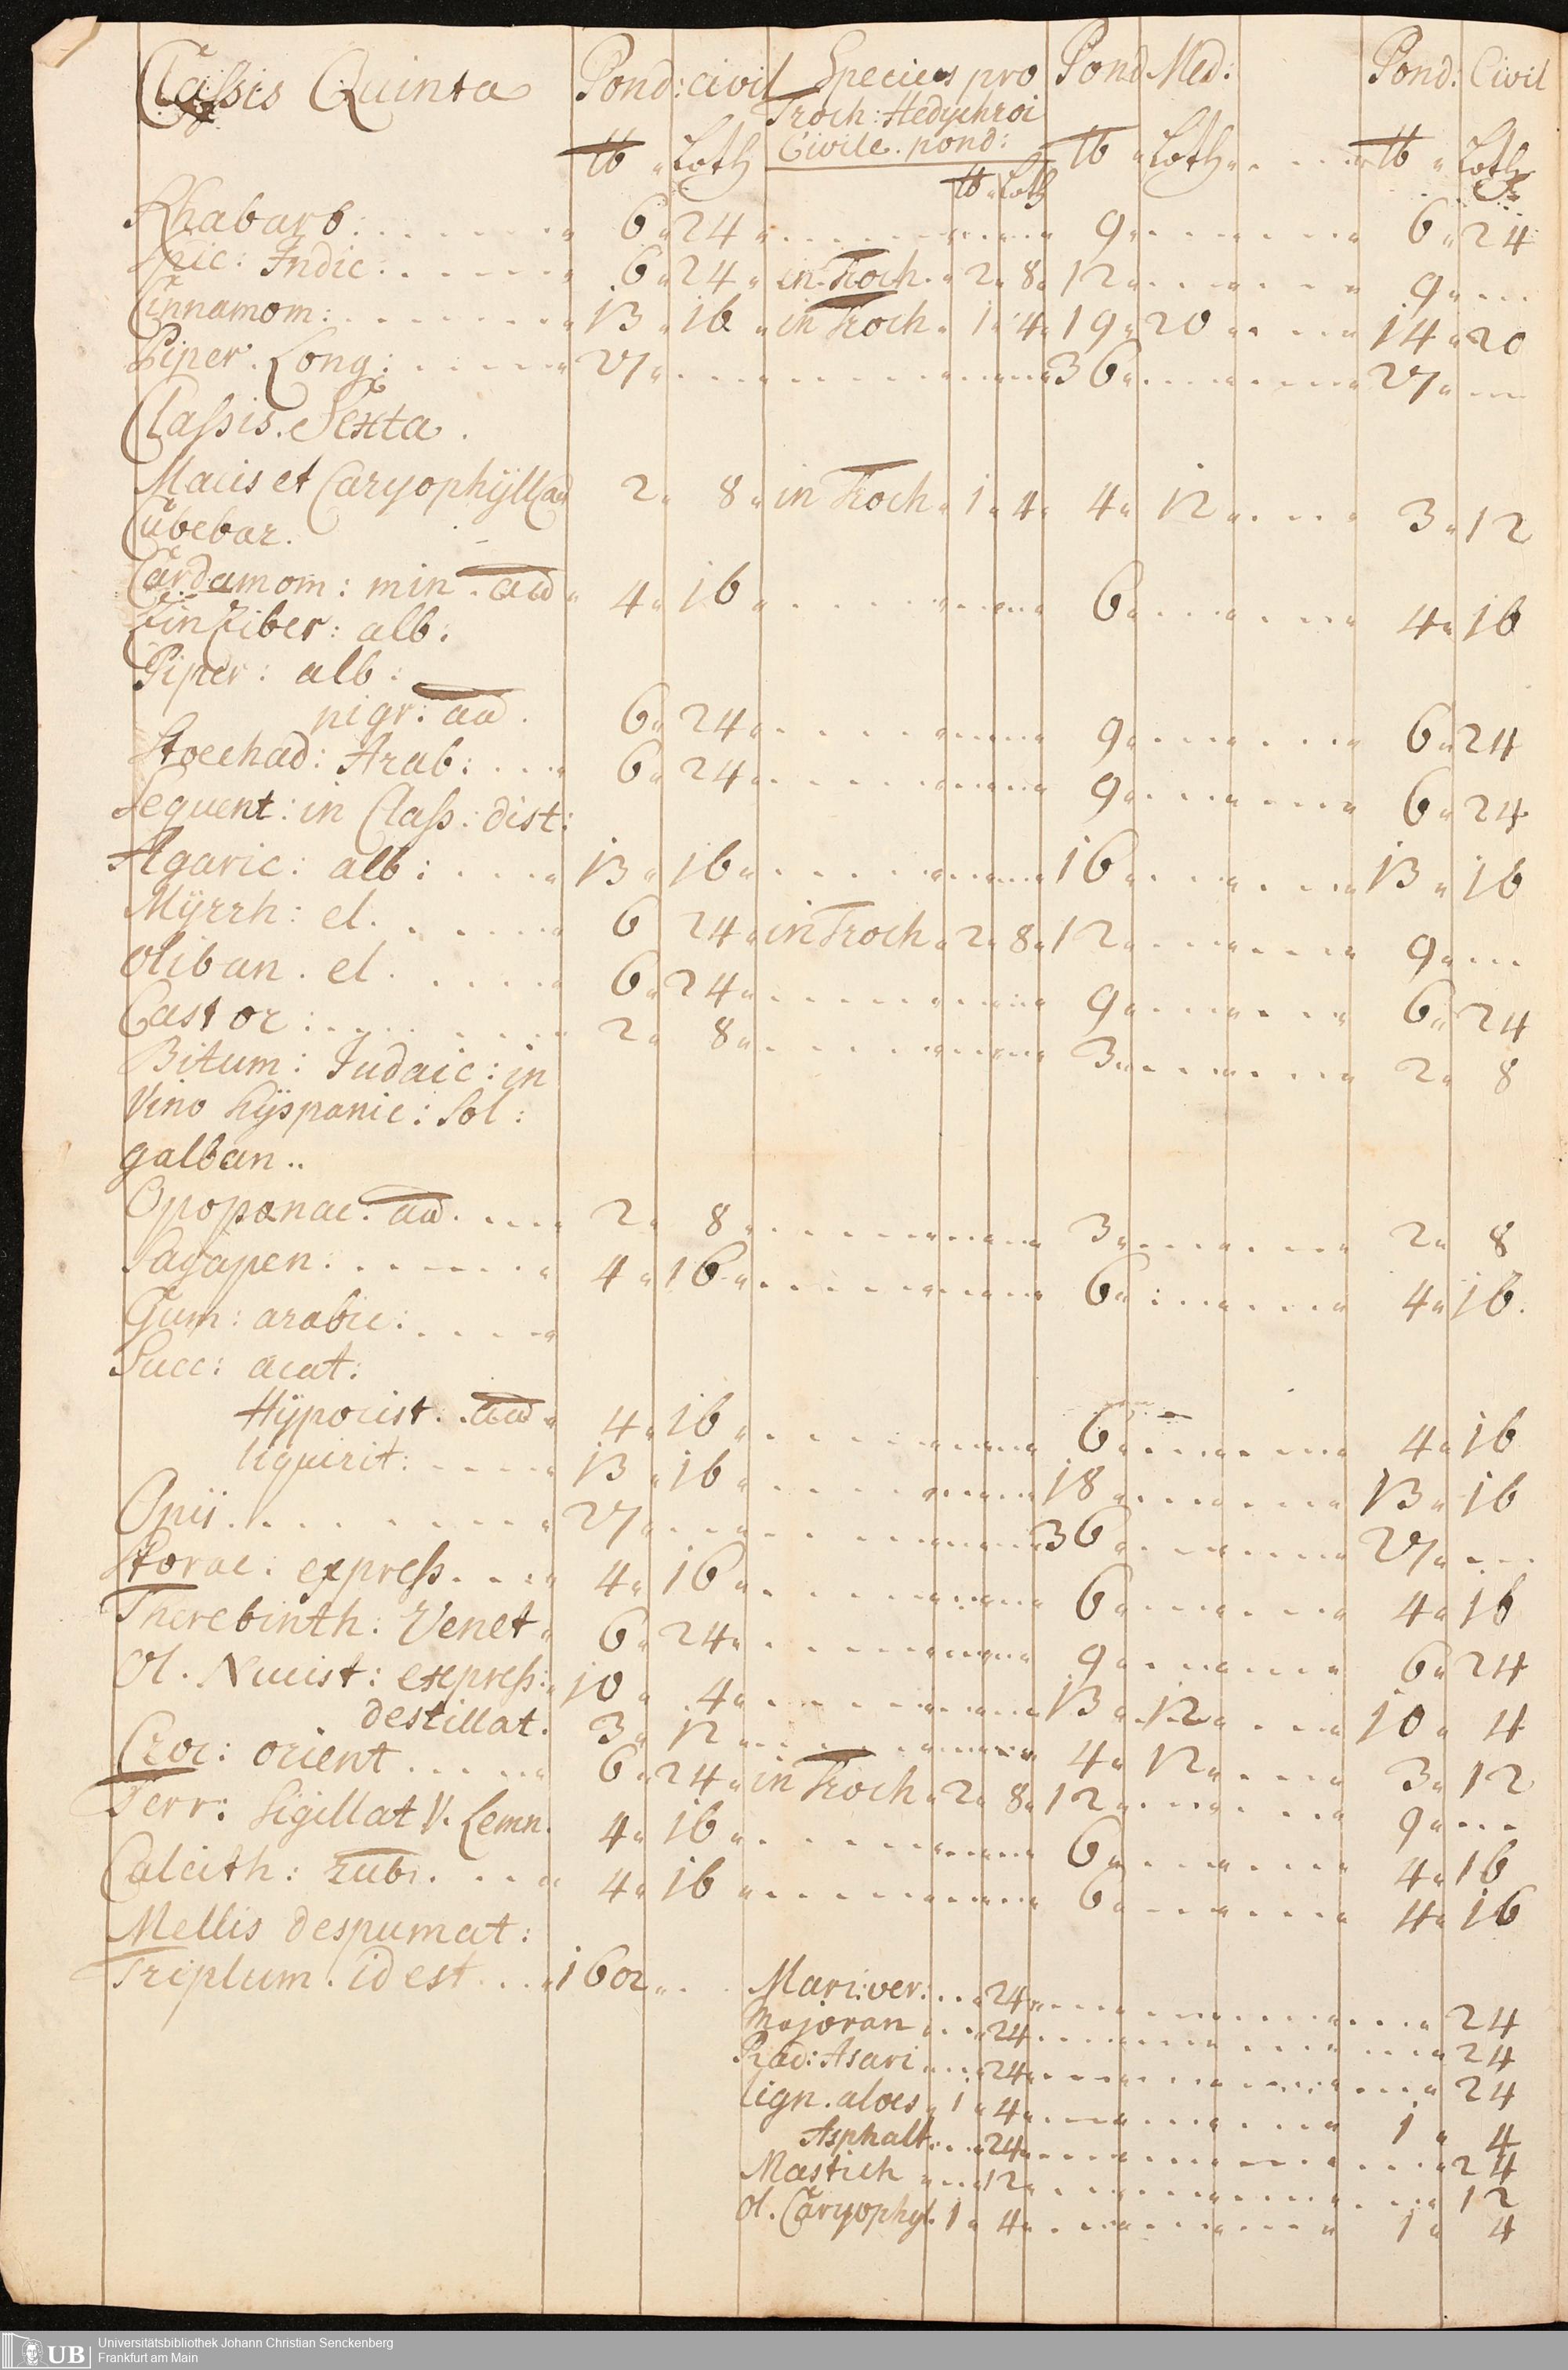 Classis Quinta Pond: civil Species pro Pond Med: Pond: Civil
Troch: Hedychroi
Civile. pond:
℔ Loth ℔ Loth ℔ Loth
℔ Loth
Rhabarb: 6 24 9 6 24
Spic: Indic. 6 24 in Troch. 2 8 12 9
Cinnamom: 13 16 in Troch. 1 4 19 20 14 20
Piper. Long: 27 36 27
Classis. Sexta.
Macis et Caryophÿll aa 2 8 in Troch 1 4 4 12 3 12
Cubebar.
Cardamom: min. aa 4 16 6 4 16
Zinziber: alb:
Piper: alb:
nigr: aa. 6 24 9 6 24
Stoechad: Arab: 6 24 9 6 24
Sequent: in Class: dist:
Agaric: alb: 13 16 16 13 16
Mÿrrh: el. 6 24 in Troch 2 8 12 9
Oliban. el. 6 24 9 6 24
Castor: 2 8 3 2 8
Bitum: Judaic: in
Vino Hÿspanic: Sol:
galban..
Opopanac. aa. 2 8 3 2 8
Sagapen. 4 16 6 4 16.
Gum: arabic:
Succ: acat:
Hÿpocist. aa 4 16 6 4 16
liquirit: 13 16 18 13 16
Opii. 27 36 27
Storac: express. 4 16 6 4 16
Therebinth: Venet 6 24 9 6 24
Ol. Nucist: express: 10 4 13 12 10 4
destillat. 3 12 4 12 3 12
Croc: orient 6 24 in Troch 2 8 12 9
Terr: Sigillat V. Lemn. 4 16 6 4 16
Calcith: rub. 4 16 6 4 16
Mellis despumat:
Triplum. id est 1602
Mari: ver: 24 24
Majoran 24 24
Rad: Asari 24 24
lign. aloes 1 4 1 4
Asphalt. 24 24
Mastich 12 12
Ol. Caryophyl. 1 4 1 4
UB Universitätsbibliothek Johann Christian Senckenberg
Frankfurt am Main